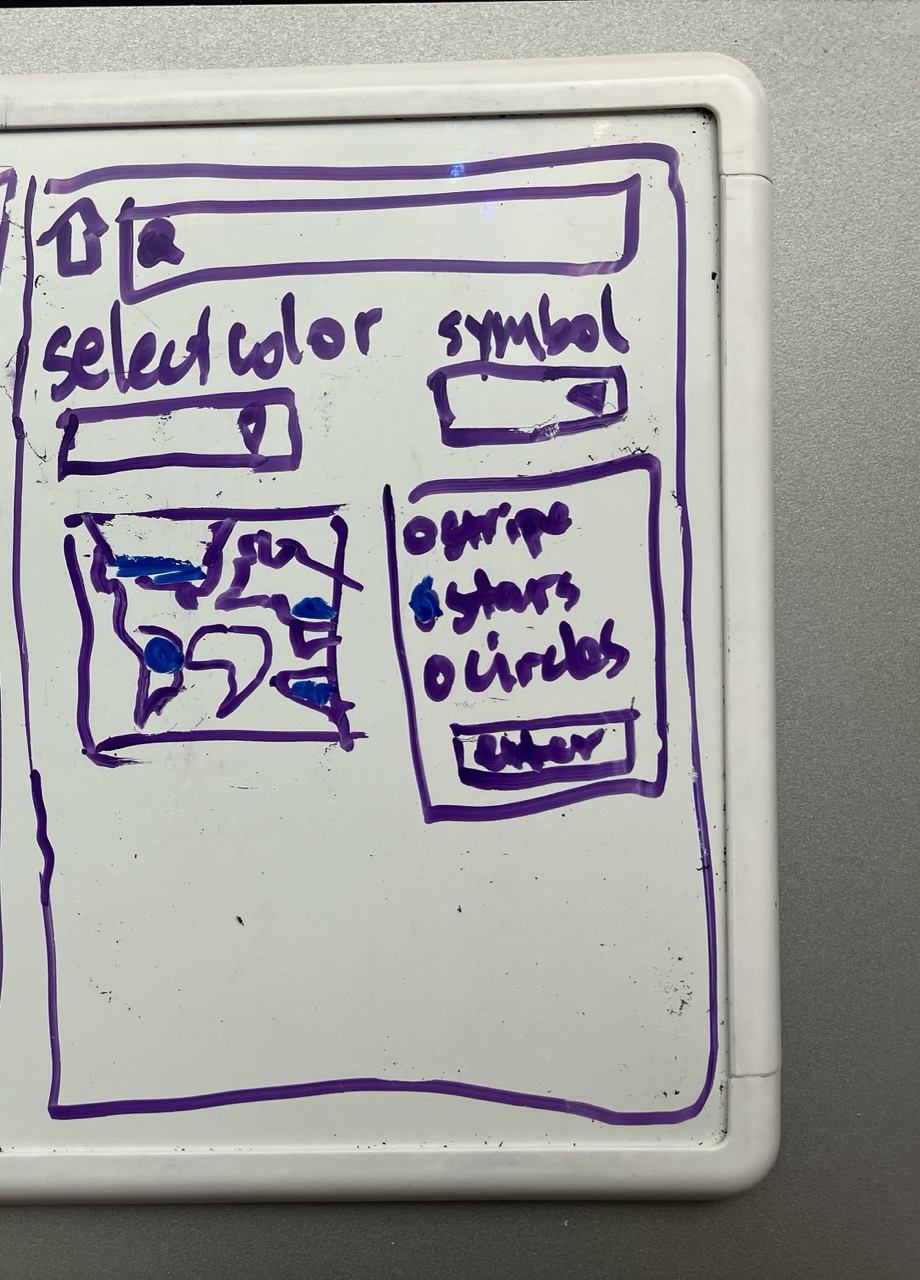 select color
symbol
stripe
stars
circles
enter